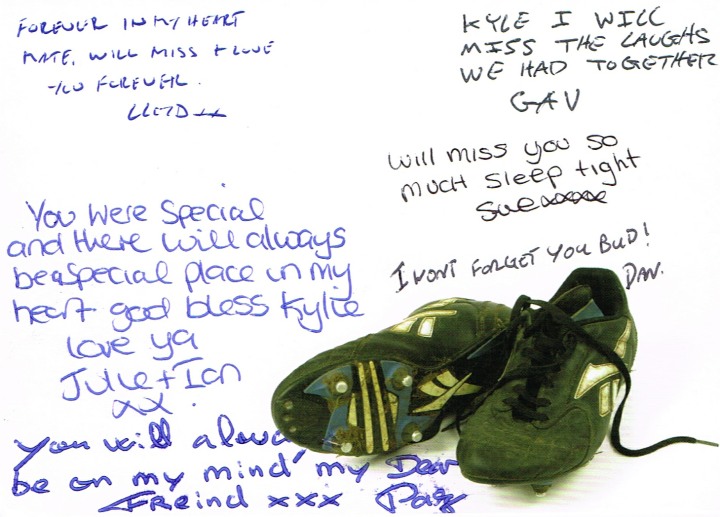 FOREVER IN MY HEART
MATE, WILL MISS & LOVE
YOU FOREVER.
LLOYD xx
KYLE I WILL
MISS THE LAUGHS
WE HAD TOGETHER
GAV
Will miss you so
much sleep tight
Sue xxxxx
I WONT FORGET YOU BUD!
DAN.
You were special
and there will always
be a special place in my
heart god bless Kylie
love ya
Julie + Ian
xx.
you will alway
be on my mind my Dear
Freind xxx